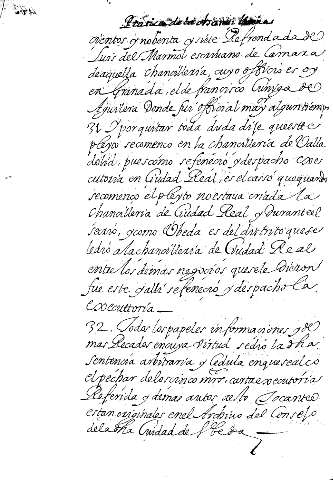 cientos y nobenta y siete Refrendada de
Luis del Marmol escrivano de Camara
de aquella chancilleria, cuyo officio es oy
en Granada, el de francisco Cuniga de
Aguilera Donde fui official muy algun tiempo
31 Y por quitar toda duda dije que este
pleyto se comenco en la chancilleria de Valla
dolid, pues como se fenecio y despacho exe
cutoria en Ciudad Real, es el casso que quando
se comenco el pleyto no estava criada la
chancilleria de Ciudad Real y durante el
se crio, y como Ubeda es del distrito que se
le dio a la chancilleria de Ciudad Real
entre los demas negocios que se le dieron
fue este y alli se fenecio y despacho la
executtoria
32. Todos los papeles informaciones y de
mas Recados en cuya virtud se dio la dha
sentencia arbitraria y Cedula en que se alco
el pechar de los cinco mrs, carta executoria
Referida y demas autos de lo tocante
estan originales en el Archivo del Consejo
de la dha Ciudad de Ubeda